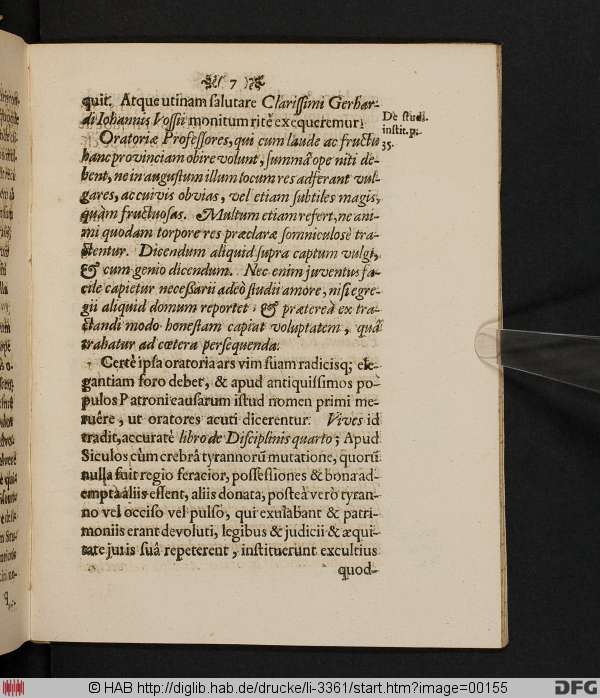 7
quit. Atque utinam salutare Clarissimi Gerhar-
di Iohannis Vossii monitum ritè exequeremur:
De studi.
instit. p.
35.
Oratoriæ Professores, qui cum laude ac fructu
hanc provinciam obire volunt, summâ ope niti de-
bent, ne in augustum illum locum res adferant vul-
gares, ac cuivis obvias, vel etiam subtiles magis,
quàm fructuosas. Multum etiam refert, ne ani-
mi quodam torpore res præclaræ somniculosè tra-
ctentur. Dicendum aliquid supra captum vulgi,
& cum genio dicendum. Nec enim juventus fa-
cile capietur necessarii adeò studii amore, nisi egre-
gii aliquid domum reportet: & præterea ex tra-
ctandi modo honestam capiat voluptatem, quâ
trahatur ad cœtera persequenda.
Certè ipsa oratoria ars vim suam radicisq; ele-
gantiam foro debet, & apud antiquissimos po-
pulos Patroni causarum istud nomen primi me-
ruêre, ut oratores acuti dicerentur. Vives id
tradit, accuratè libro de Disciplinis quarto; Apud
Siculos cùm crebrâ tyrannorū mutatione, quorū
nulla fuit regio feracior, possessiones & bona ad-
empta aliis essent, aliis donata, posteà verò tyran-
no vel occiso vel pulso, qui exulabant & patri-
moniis erant devoluti, legibus & judicii & æqui-
tate juris suâ repeterent, instituerunt excultius
quod-
© HAB http://diglib.hab.de/drucke/li-3361/start.htm?image=00155
DFG